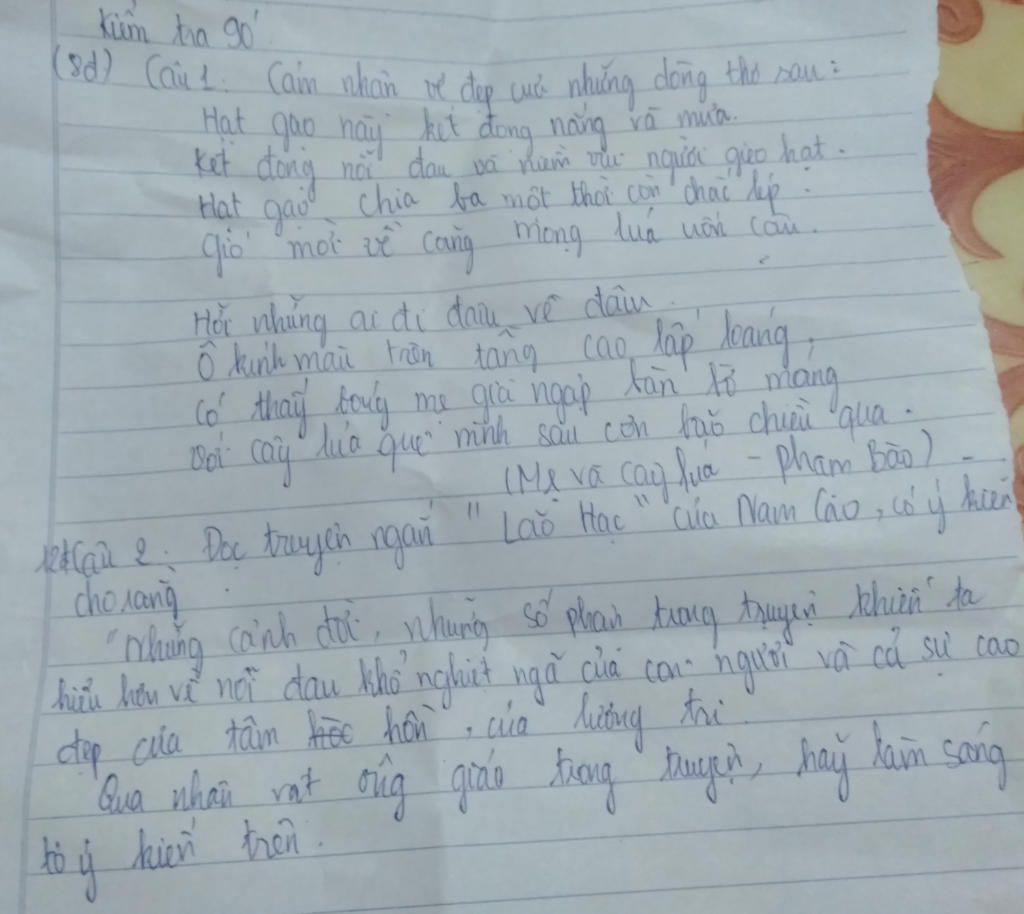 Kiểm tra 90'
(8đ) Câu 1. Cảm nhận vẻ đẹp của những dòng thơ sau:
Hạt gạo này kết đọng nắng và mưa.
Kết đọng nỗi đau và niềm vui người gieo hạt.
Hạt gạo chia ba một thời còn chắc lép:
Gió mới về càng mỏng lúa uốn câu.
Hỡi những ai đi đâu về đâu
Ô kính màu trên tầng cao lấp loáng,
Có thấy bóng mẹ già ngập tần tảo mảng
Với cây lúa quê mình sau cơn bão chiều qua.
(Mẹ và cây lúa - Phạm Bão) -
12đ Câu 2: Đọc truyện ngắn "Lão Hạc" của Nam Cao, có ý kiến
cho rằng:
"Những cảnh đời, những số phận trong truyện khiến ta
hiểu hơn về nỗi đau khổ nghiệt ngã của con người và cả sự cao
đẹp của tâm hồn, của lương tri.
Qua nhân vật ông giáo trong truyện, hãy làm sáng
tỏ ý kiến trên.